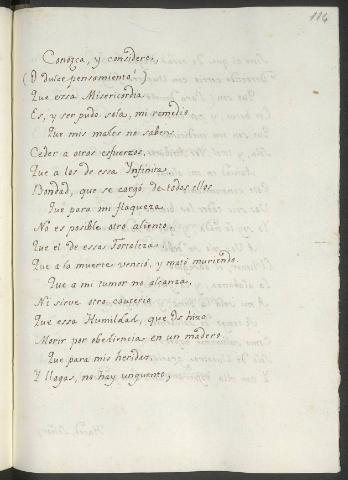 114
Conozca, y considere,
(O dulce pensamiento!)
Que essa Misericordia
Es, y ser pudo sola, mi remedio
Que mis males no saben
Ceder a otros esfuerzos.
Que a los de essa Infinita
Bondad, que se cargó de todos ellos
Que para mi flaqueza
No es posible otro aliento,
Que el de essa Fortaleza
Que a la muerte venció, y mató muriendo.
Que a mi tumor no alcanza,
Ni sirve otro cauterio
Que essa Humildad, que os hizo
Morir por obediencias en un madero
Que para mis heridas,
Y llagas, no hay unguento,